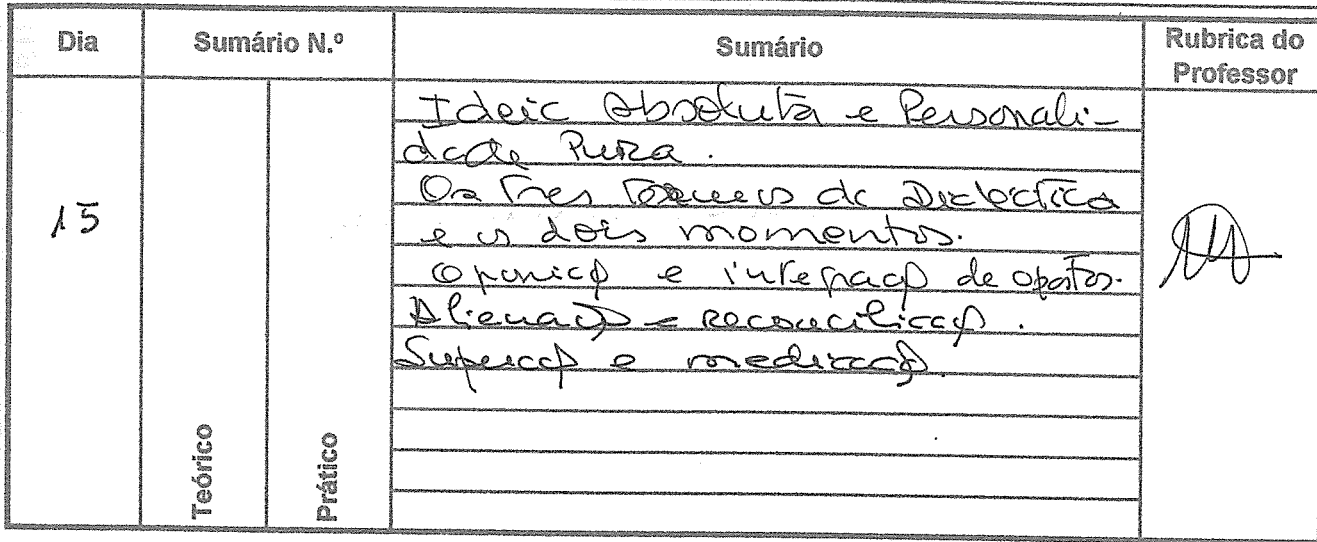 Dia
Sumário N.º
Sumário
Rubrica do
Professor
15
Teórico
Prático
Ideia Absoluta e Personali-
dade Pura.
Os Três da Dialéctica
e os dois momentos.
Oposição e integração de opostos.
Alienação e reconciliação.
Superação e mediação.